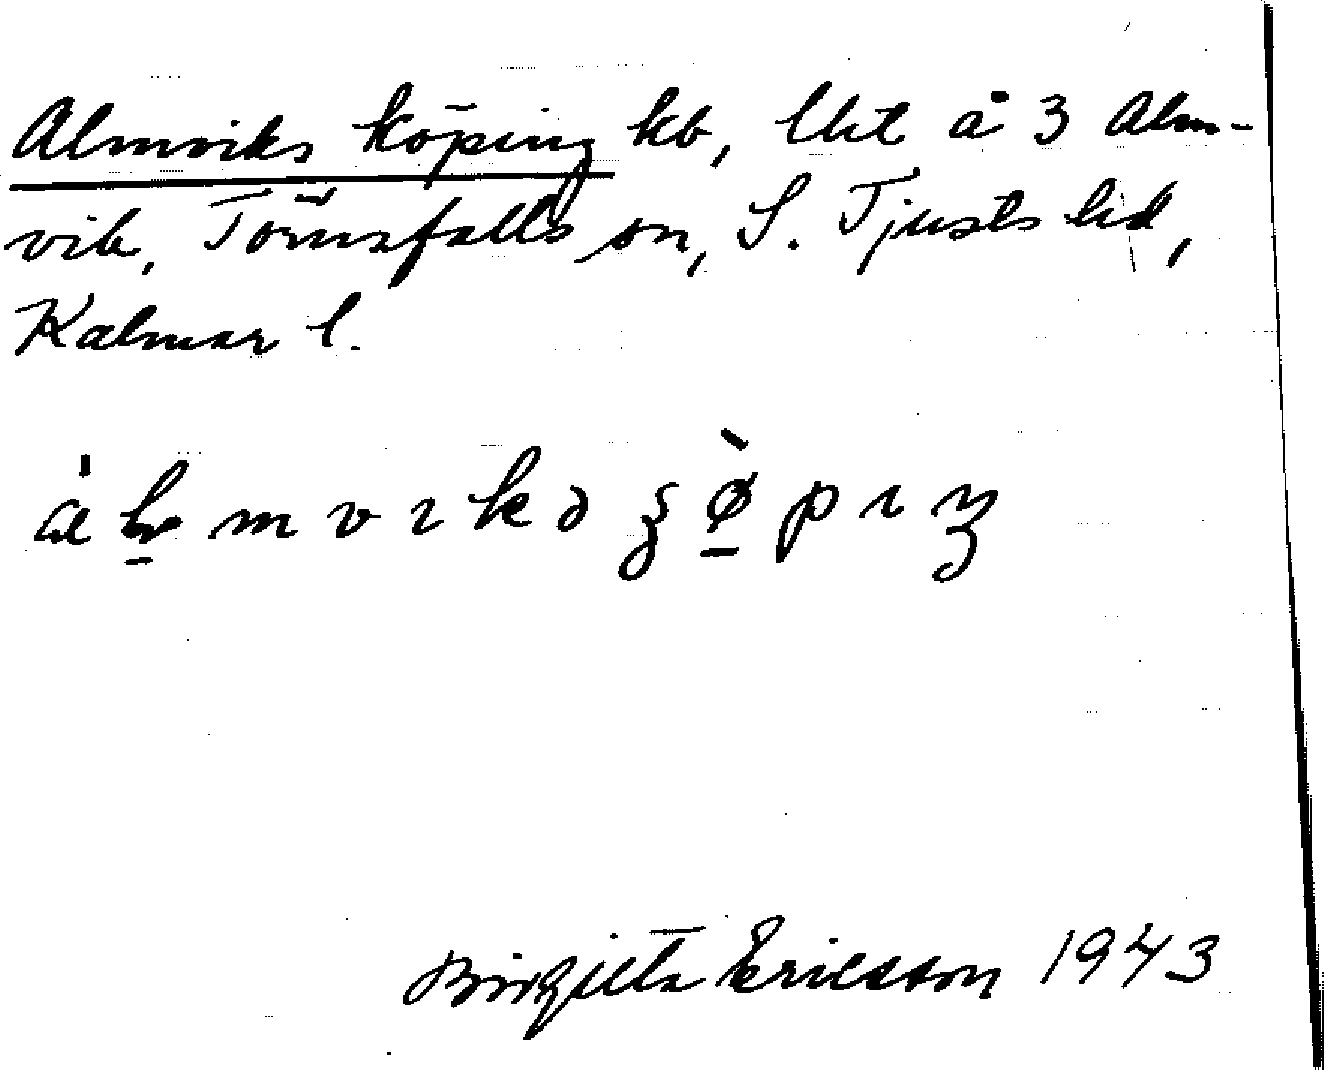 Almviks köping kb, lht å 3 Alm-
vik, Törnsfalls sn, S. Tjusts hd,
Kalmar l.
Birgitta Ericsson 1943